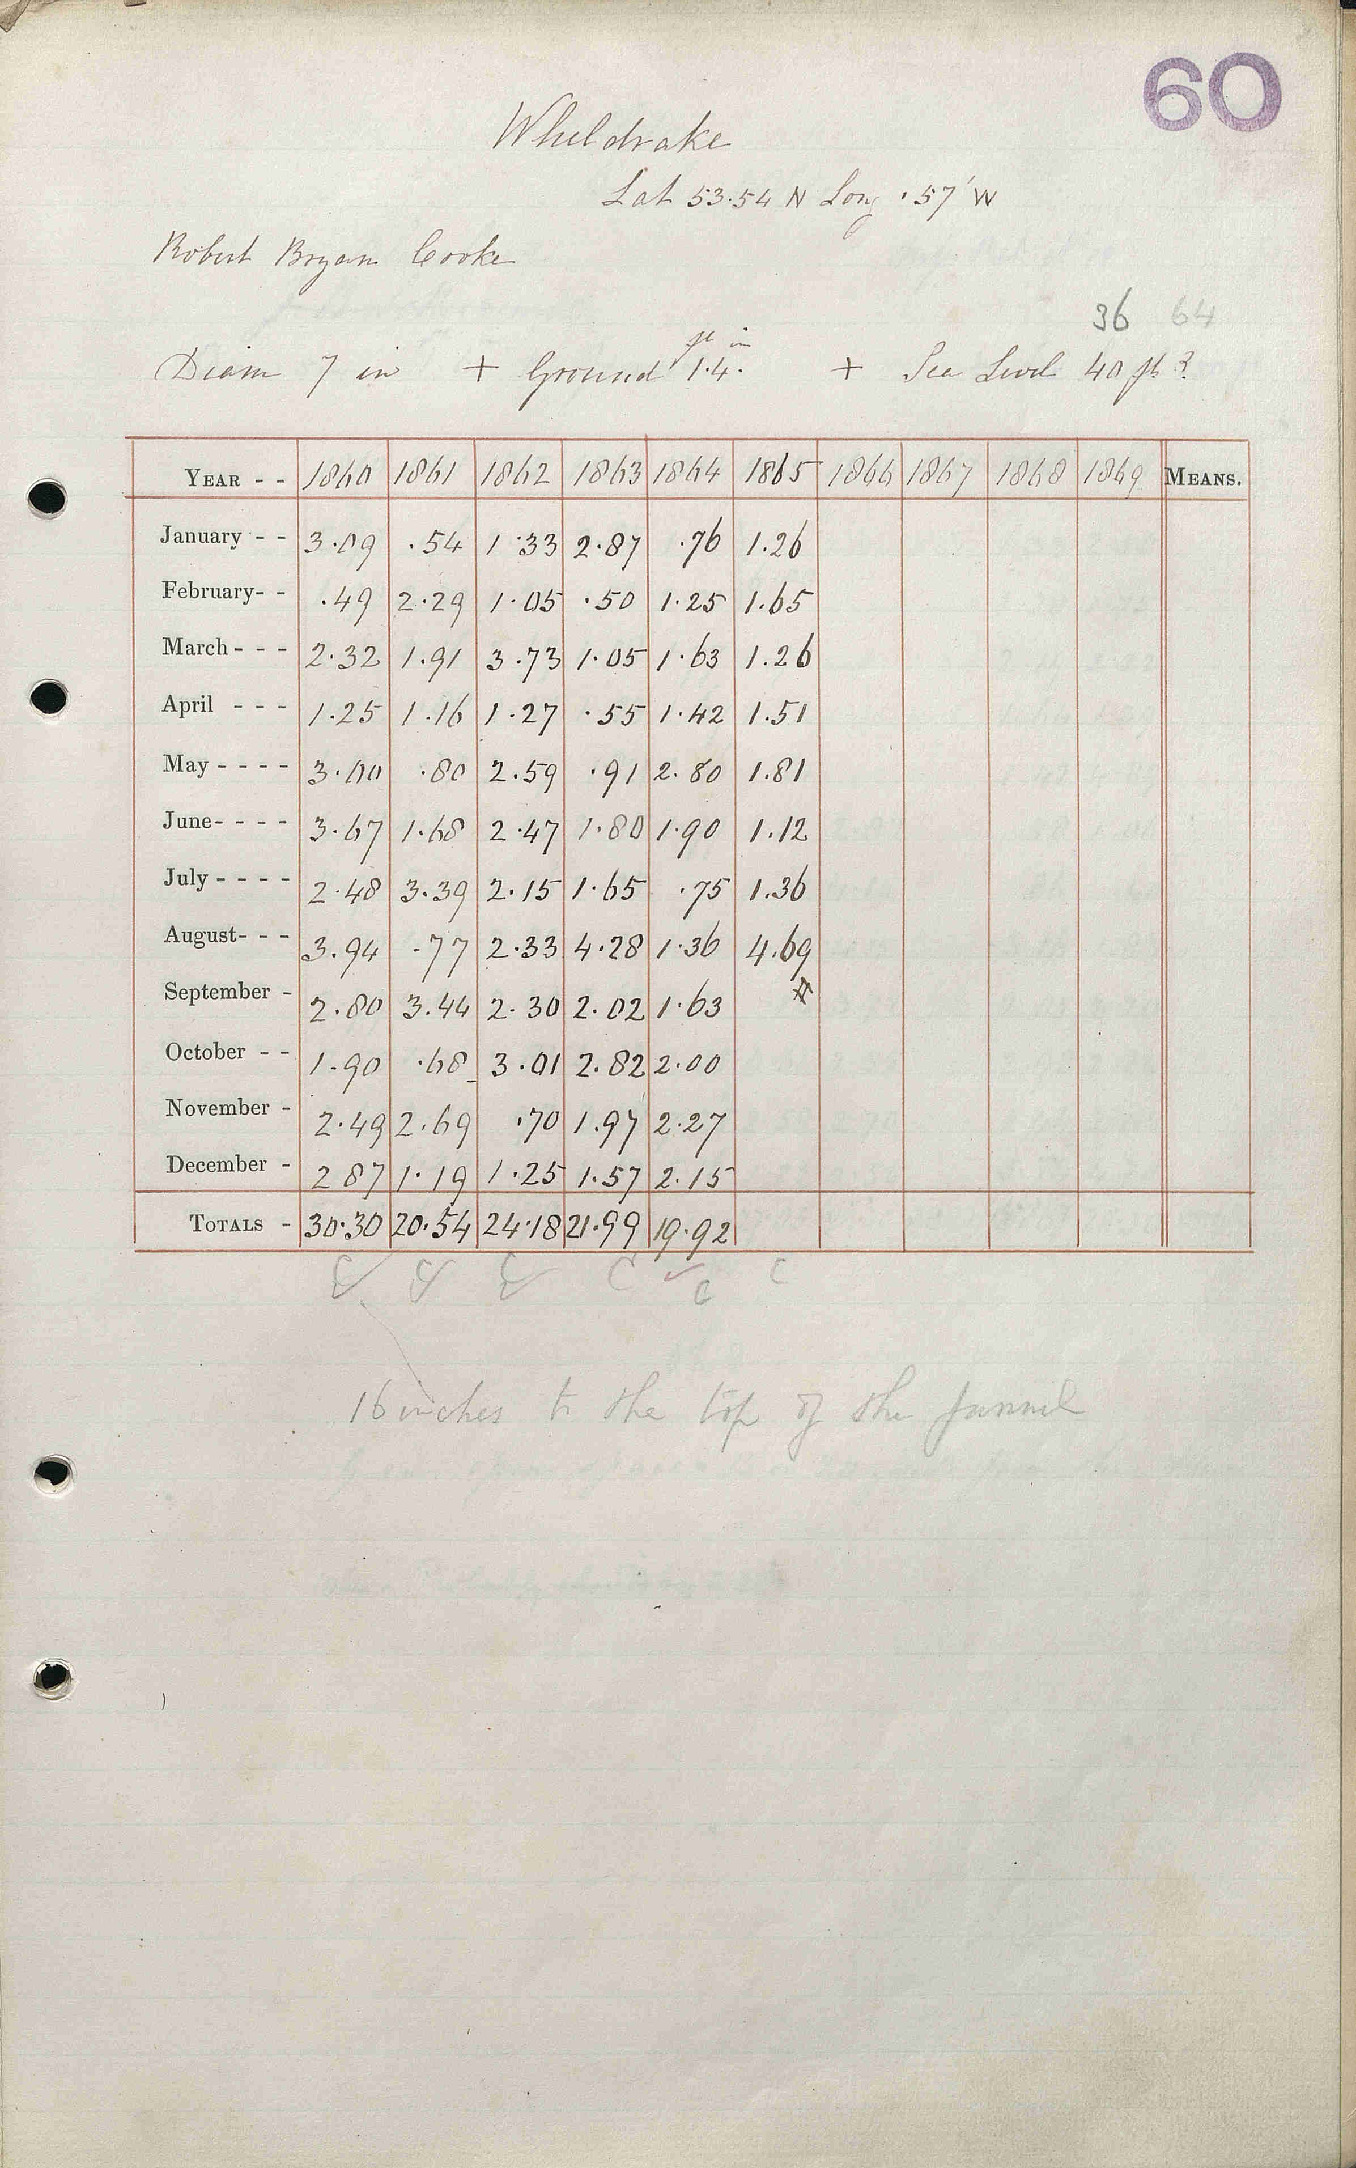 60
Wheldrake
Lat 53.54 N Long .57' W
Robert Bryan Cooke
36 64
ft in
Diam 7 in + Ground 1.4. + Sea Level 40 ft ?
YEAR - - 1860 1861 1862 1863 1864 1865 1866 1867 1868 1869 MEANS.
January - - 3.09 .54 1.33 2.87 .76 1.26
February- - .49 2.29 1.05 .50 1.25 1.65
March - - - 2.32 1.91 3.73 1.05 1.63 1.26
April - - - 1.25 1.16 1.27 .55 1.42 1.51
May - - - - 3.00 .80 2.59 .91 2.80 1.81
June- - - - 3.67 1.68 2.47 1.80 1.90 1.12
July - - - - 2.48 3.39 2.15 1.65 .75 1.36
August- - - 3.94 .77 2.33 4.28 1.36 4.69
September - 2.80 3.44 2.30 2.02 1.63 #
October - - 1.90 .68 3.01 2.82 2.00
November - 2.49 2.69 .70 1.97 2.27
December - 2 87 1.19 1.25 1.57 2.15
TOTALS - 30.30 20.54 24.18 21.99 19.92
C C C C C C
16 inches to the top of the funnel